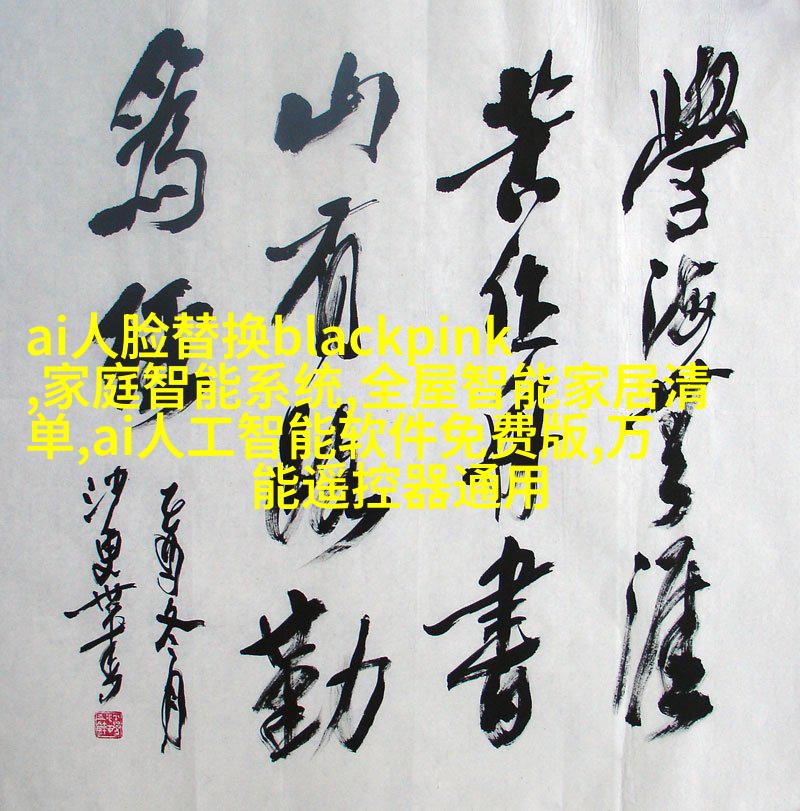 學海無涯
苦作舟書
山有路勤
為徑
乙酉冬月
沙更世書
ai人脸替换blackpink
,家庭智能系统,全屋智能家居清
单,ai人工智能软件免费版,万
能遥控器通用